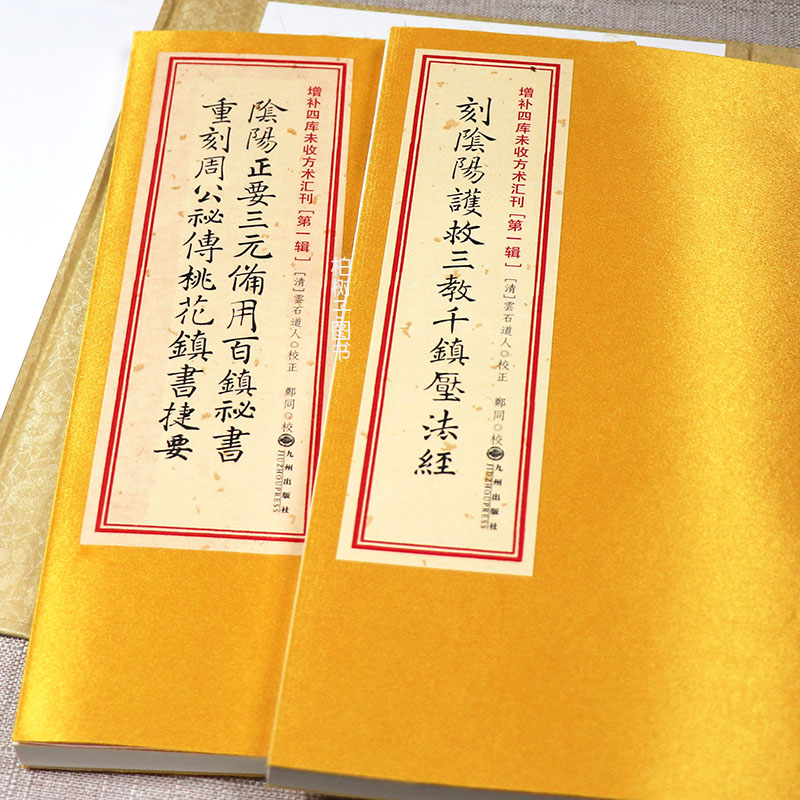 增补四库未收方术汇刊［第一辑］
陰陽正要三元備用百鎮祕書
重刻周公祕傳桃花鎮書捷要
［清］雲石道人◎校正 鄭同◎校
九州出版社
JIUZHOUPRESS
增补四库未收方术汇刊［第一辑］
刻陰陽護救三教千鎮壓法經
［清］雲石道人◎校正 鄭同◎校
九州出版社
JIUZHOUPRESS
柏树子图书